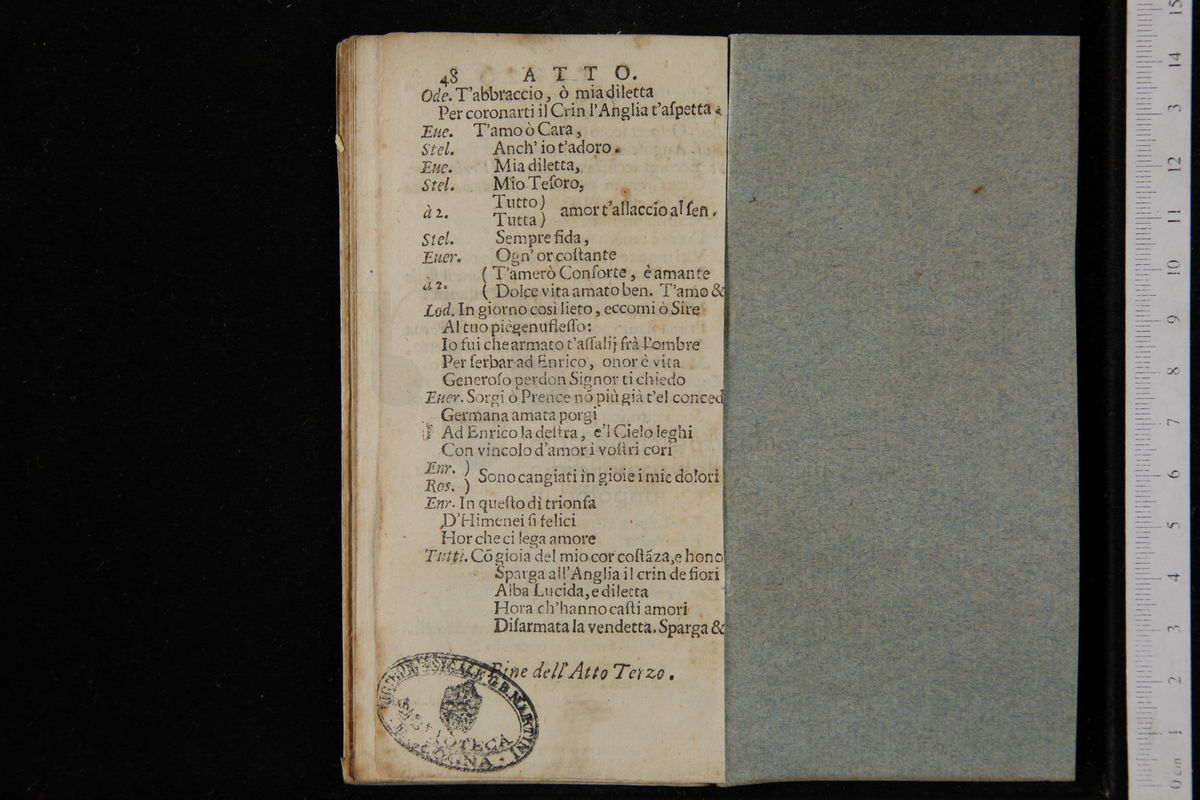 48 ATTO.
Ode. T'abbraccio, ò mia diletta
Per coronarti il Crin l'Anglia t'aſpetta.
Eue. T'amo ò Cara,
Stel. Anch' io t'adoro.
Eue. Mia diletta,
Stel. Mio Teſoro,
à 2. Tutto)
Tutta) amor t'allaccio al ſen.
Stel. Sempre fida,
Euer. Ogn' or coſtante
à 2. ( T'amerò Conſorte, è amante
( Dolce vita amato ben. T'amo &
Lod. In giorno così lieto, eccomi ò Sire
Al tuo piè genufleſſo:
Io fui che armato t'aſſalij frà l'ombre
Per ſerbar ad Enrico, onor è vita
Generoſo perdon Signor ti chiedo
Euer. Sorgi ò Prence nõ più già t'el conced
Germana amata porgi
Ad Enrico la deſtra, e'l Cielo leghi
Con vincolo d'amor i voſtri cori
Enr. )
Ros. ) Sono cangiati in gioie i mie dolori
Enr. In queſto dì trionfa
D'Himenei ſi felici
Hor che ci lega amore
Tutti. Cõ gioia del mio cor coſtãza, e hono
Sparga all'Anglia il crin de fiori
Alba Lucida, e diletta
Hora ch'hanno caſti amori
Diſarmata la vendetta. Sparga &
Fine dell' Atto Terzo.
MUSICALE G.B. MARTINI
BIBLIOTECA
BOLOGNA
0 cm 1 2 3 4 5 6 7 8 9 10 11 12 3 14 15